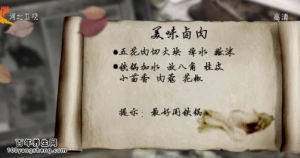 湖北卫视
高清
美味卤肉
● 五花肉切大块 焯水 撇沫
● 铁锅加水 放八角 桂皮
小茴香 肉蔻 花椒
提示：最好用铁锅
百年养生网
100yangsheng.com